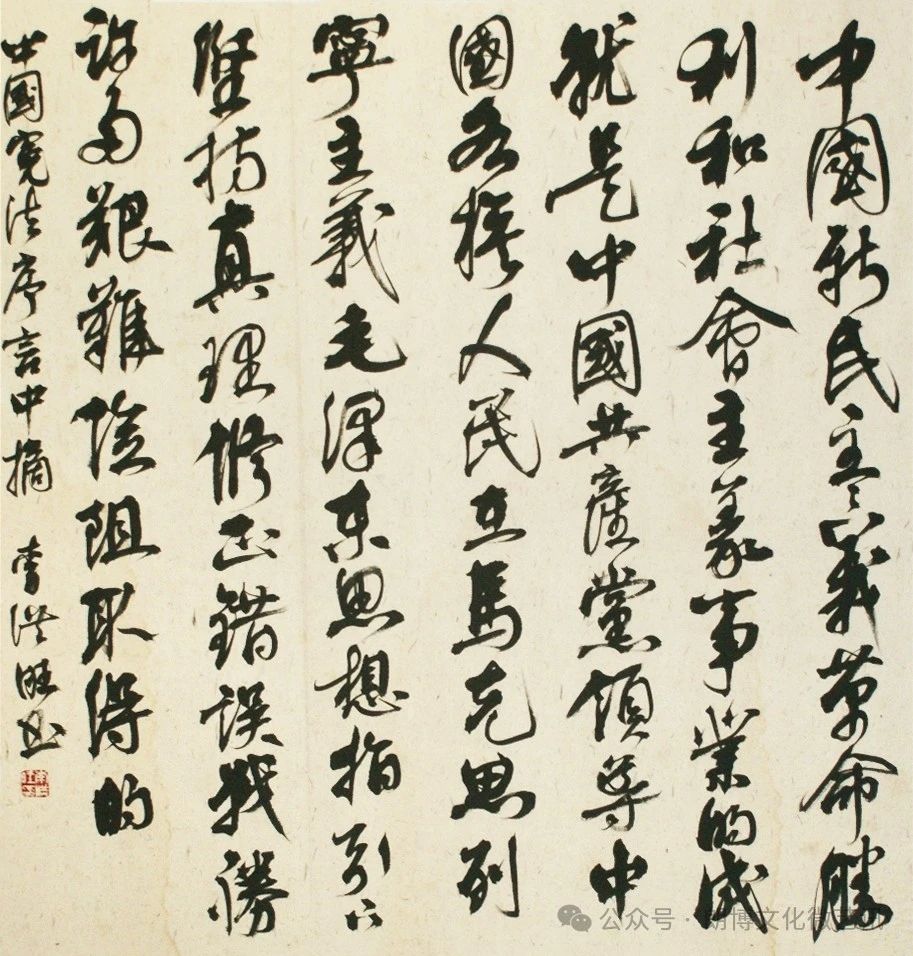 中國新民主々義革命勝
利和社會主義事業的成
就是中國共產黨領導中
國各族人民在馬克思列
寧主義毛澤東思想指引下
堅持真理修正錯誤戰勝
許多艱難險阻取得的
中國憲法序言中摘 李洪旺書
公众号 · 朗博文化微